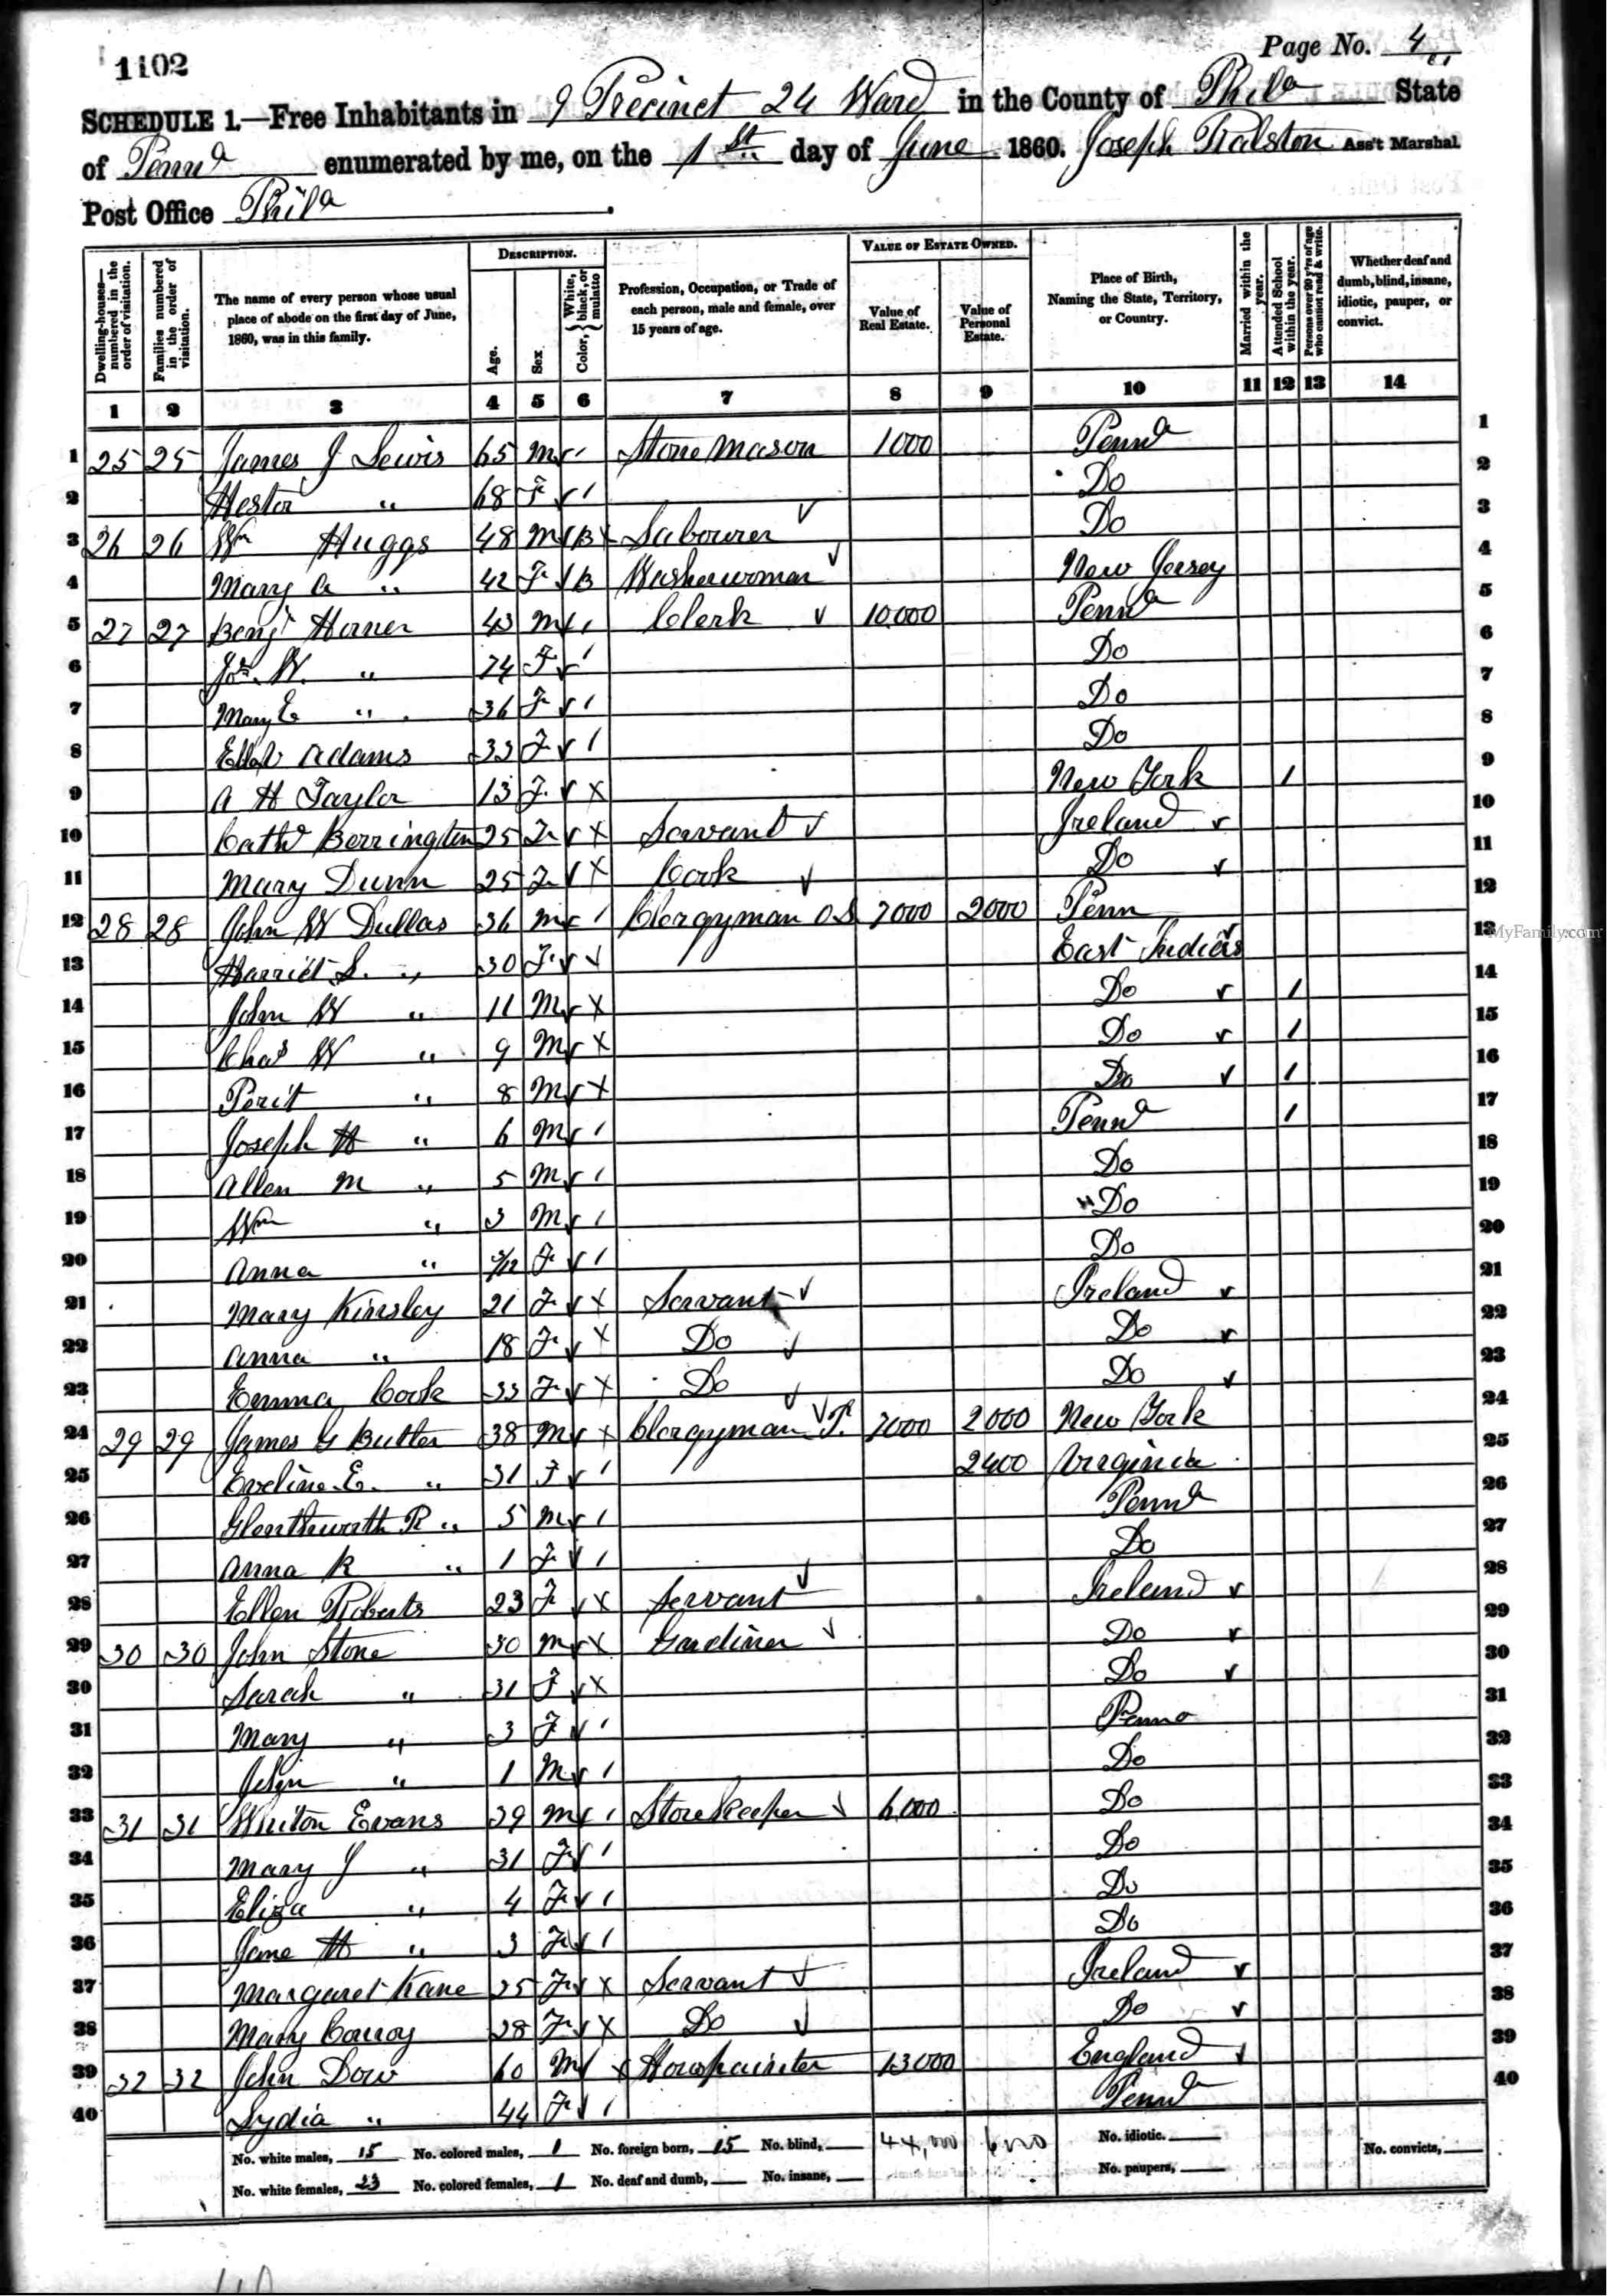 1102
Page No. 4
SCHEDULE 1.—Free Inhabitants in 9 Precinct 24 Ward in the County of Phila State
of Penna enumerated by me, on the 1st day of June 1860. Joseph Ralston Ass't Marshal.
Post Office Phila
Dwelling-houses—numbered in the order of visitation.
Families numbered in the order of visitation.
The name of every person whose usual place of abode on the first day of June, 1860, was in this family.
DESCRIPTION.
Age.
Sex
Color, { White, black, or mulatto
Profession, Occupation, or Trade of each person, male and female, over 15 years of age.
VALUE OF ESTATE OWNED.
Value of Real Estate.
Value of Personal Estate.
Place of Birth, Naming the State, Territory, or Country.
Married within the year.
Attended School within the year.
Persons over 20 y'rs of age who cannot read & write.
Whether deaf and dumb, blind, insane, idiotic, pauper, or convict.
1 2 3 4 5 6 7 8 9 10 11 12 13 14
1 25 25 James J Lewis 65 M Stone Mason 1000 Penna 1
2 Hester " 68 F Do 2
3 26 26 Wm Huggs 48 M B Labourer Do 3
4 Mary A " 42 F B Washerwoman New Jersey 4
5 27 27 Benj Horner 43 M Clerk 10,000 Penna 5
6 W. " 74 F Do 6
7 Mary E " 36 F Do 7
8 Adams 33 F Do 8
9 A H Taylor 13 F New York 1 9
10 Cath Berrington 25 F Servant Ireland 10
11 Mary Dunn 25 F Cook Do 11
12 28 28 John W Dullas 36 M Clergyman O.S. 7000 2000 Penn 12
13 Harriet L. " 30 F East Indies 13
MyFamily.com
14 John W " 11 M Do 1 14
15 Chas W " 9 M Do 1 15
16 Perit " 8 M Do 1 16
17 Joseph H " 6 M Penna 1 17
18 Allen M " 5 M Do 18
19 Wm " 3 M Do 19
20 Anna " F Do 20
21 Mary Kinsley 21 F Servant Ireland 21
22 Anna " 18 F Do Do 22
23 Emma Cook 33 F Do Do 23
24 29 29 James G Butler 38 M Clergyman P. 7000 2000 New York 24
25 Eveline E. " 31 F 2400 Virginia 25
26 Glenthworth R " 5 M Penna 26
27 Anna R " 1 F Do 27
28 Ellen Roberts 23 F Servant Ireland 28
29 30 30 John Stone 30 M Gardiner Do 29
30 Sarah " 31 F Do 30
31 Mary " 3 F Penna 31
32 John " 1 M Do 32
33 31 31 Evans 29 M Storekeeper 6,000 Do 33
34 Mary J " 31 F Do 34
35 Eliza " 4 F Do 35
36 Jane H " 3 F Do 36
37 Margaret Kane 25 F Servant Ireland 37
38 Mary Conroy 28 F Do Do 38
39 32 32 John Dow 60 M 13000 England 39
40 Lydia " 44 F Penna 40
No. white males, 15 No. colored males, 1 No. foreign born, 15 No. blind, 44,000 No. idiotic. No. convicts,
No. white females, 23 No. colored females, 1 No. deaf and dumb, No. insane, No. paupers,